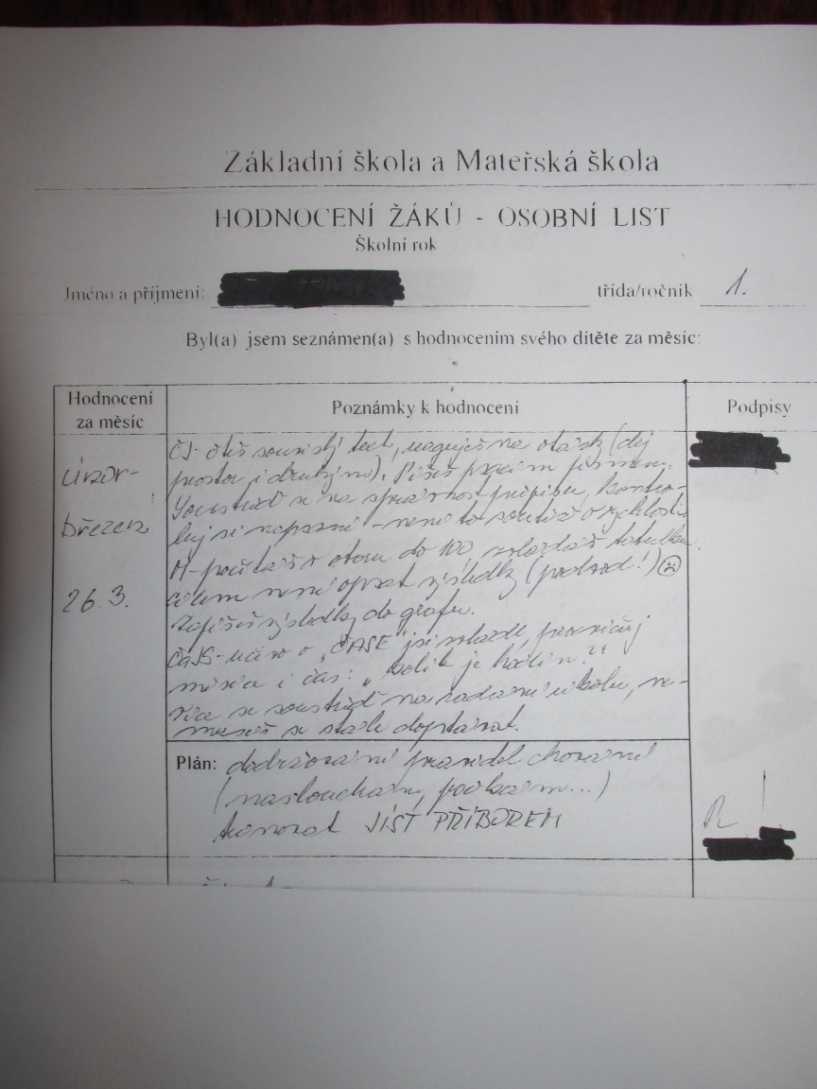 Základní škola a Mateřská škola
HODNOCENÍ ŽÁKŮ - OSOBNÍ LIST
Školní rok
Jméno a příjmení: třída/ročník 1.
Byl(a) jsem seznámen(a) s hodnocením svého dítěte za měsíc:
Hodnocení za měsíc
Poznámky k hodnocení
Podpisy
únor-
březen
26.3.
ČJ- čteš souvislý text, reaguješ na otázky (dej
prostor i druhým). Píšeš psacím písmem.
Soustřeď se na správnost přípisu, kontro-
luj si napsané - není to soutěž o rychlost.
M- počítáš v oboru do 100, zvládáš tabulku,
cílem není opsat výsledky (podvod!) ☹
Zapíšeš výsledky do grafu.
ČaJS- učivo o "ČASE" jsi zvládl, procvičuj
měsíce i čas: "kolik je hodin?"
Více se soustřeď na zadání úkolu, ne-
musíš se stále doptávat.
Plán: dodržování pravidel chování
(naslouchám, počkám...)
trénovat JÍST PŘÍBOREM